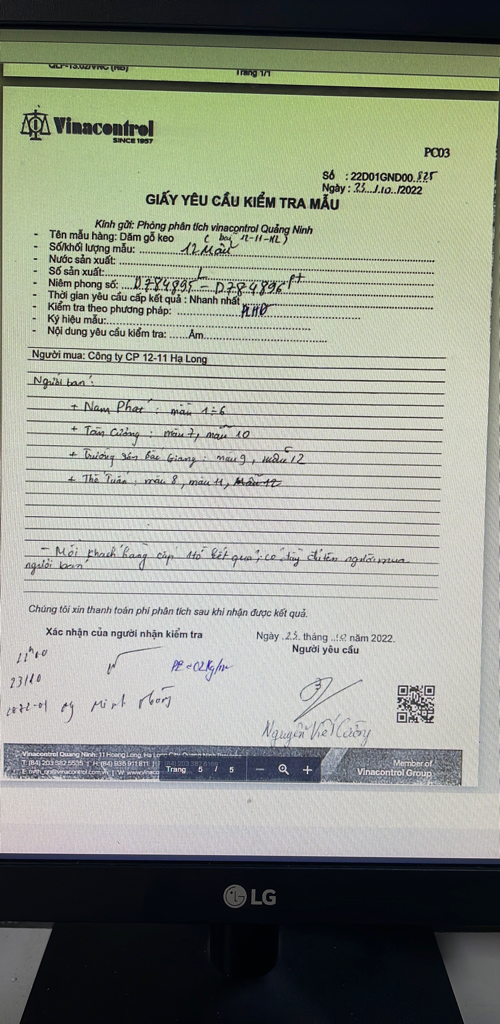 QLP-13.02/VNC (RB)
Trang 1/1
Vinacontrol
SINCE 1957
PC03
Số : 22D01GND00.825
Ngày : 23.../.10.../2022
GIẤY YÊU CẦU KIỂM TRA MẪU
Kính gửi: Phòng phân tích vinacontrol Quảng Ninh
- Tên mẫu hàng: Dăm gỗ keo ( bay 12-11-HL)
- Số/khối lượng mẫu: 12 Mẫu
- Nước sản xuất:
- Số sản xuất: L
- Niêm phong số: D784895 - D784896 pt
- Thời gian yêu cầu cấp kết quả : Nhanh nhất
- Kiểm tra theo phương pháp:
- Ký hiệu mẫu:
- Nội dung yêu cầu kiểm tra: ......Ẩm
Người mua: Công ty CP 12-11 Hạ Long
Người bán :
+ Nam Phát : mẫu 1÷6
+ Tân Cường : mẫu 7, mẫu 10
+ Trường Sơn Bắc Giang : mẫu 9, mẫu 12
+ Thế Tuấn : mẫu 8, mẫu 11, Mẫu 12
- Mỗi khách hàng cấp kết quả, có người mua
người bán
Chúng tôi xin thanh toán phí phân tích sau khi nhận được kết quả.
Xác nhận của người nhận kiểm tra
Ngày .23. tháng .10 năm 2022.
Người yêu cầu
11h00
23/10
Minh
Nguyễn Viết Cường
Vinacontrol Quang Ninh: 11 Hoang Long, Ha Lo
T: (84) 203 382 5535 | H: (84) 936 911 811
Trang 5 / 5
Member of
Vinacontrol Group
LG